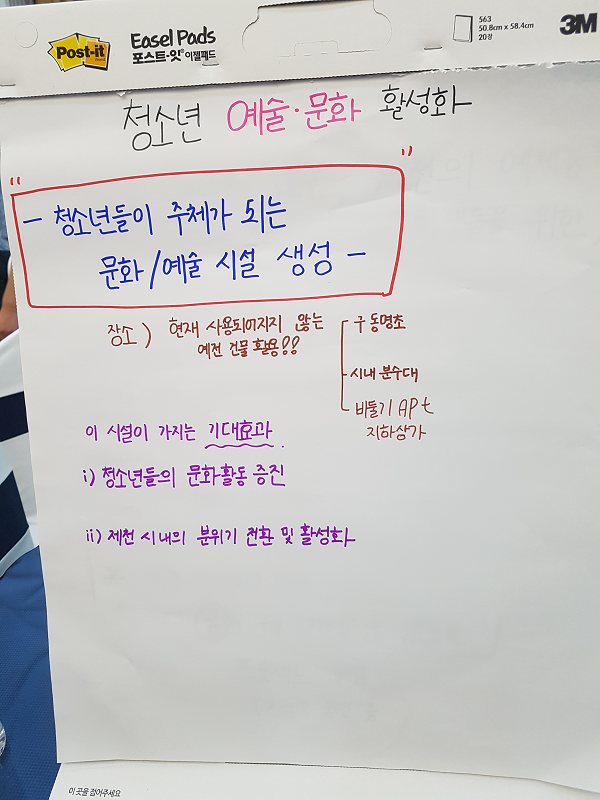 Post-it
Easel Pads
포스트-잇® 이젤패드
563
50.8cm x 58.4cm
20장
3M
청소년 예술·문화 활성화
"
"
- 청소년들이 주체가 되는
문화/예술 시설 생성 -
장소) 현재 사용되어지지 않는
예전 건물 활용!!
구 동명초
시내 분수대
비둘기 APt
지하상가
이 시설이 가지는 기대효과.
i) 청소년들의 문화활동 증진
ii) 제천 시내의 분위기 전환 및 활성화
이 곳을 접어주세요